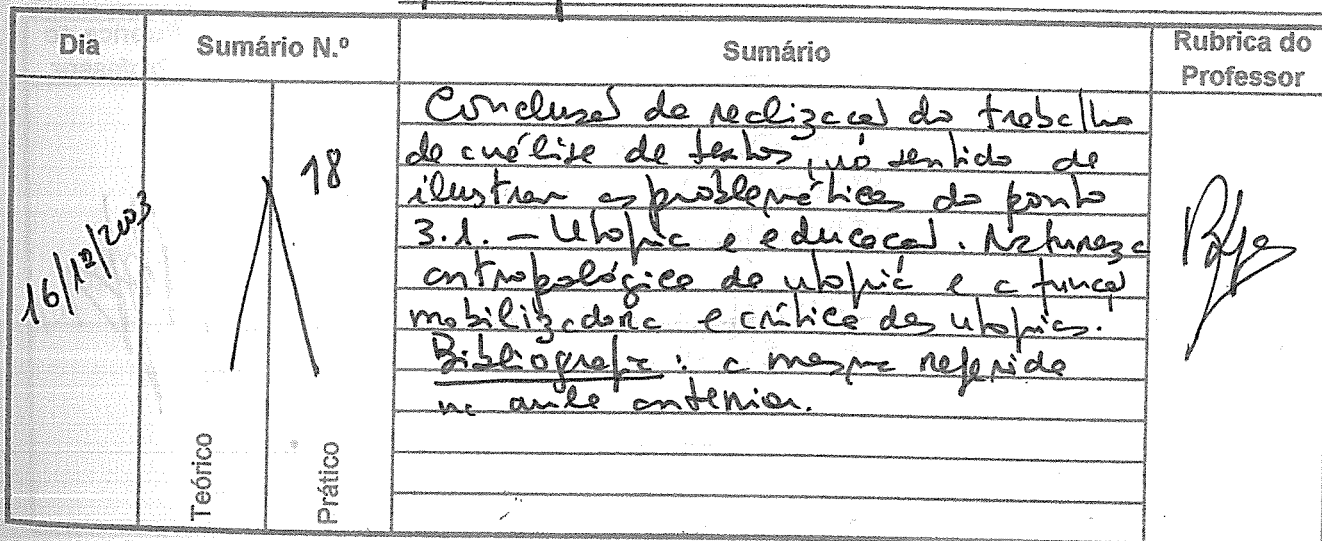 Dia
Sumário N.º
Sumário
Rubrica do
Professor
16/12/2003
18
Teórico
Prático
Conclusão da realização do trabalho
de análise de textos, no sentido de
ilustrar as problemáticas do ponto
3.1. – Utopia e educação. Natureza
antropológica da utopia e a função
mobilizadora e crítica das utopias.
Bibliografia: a mesma referida
na aula anterior.